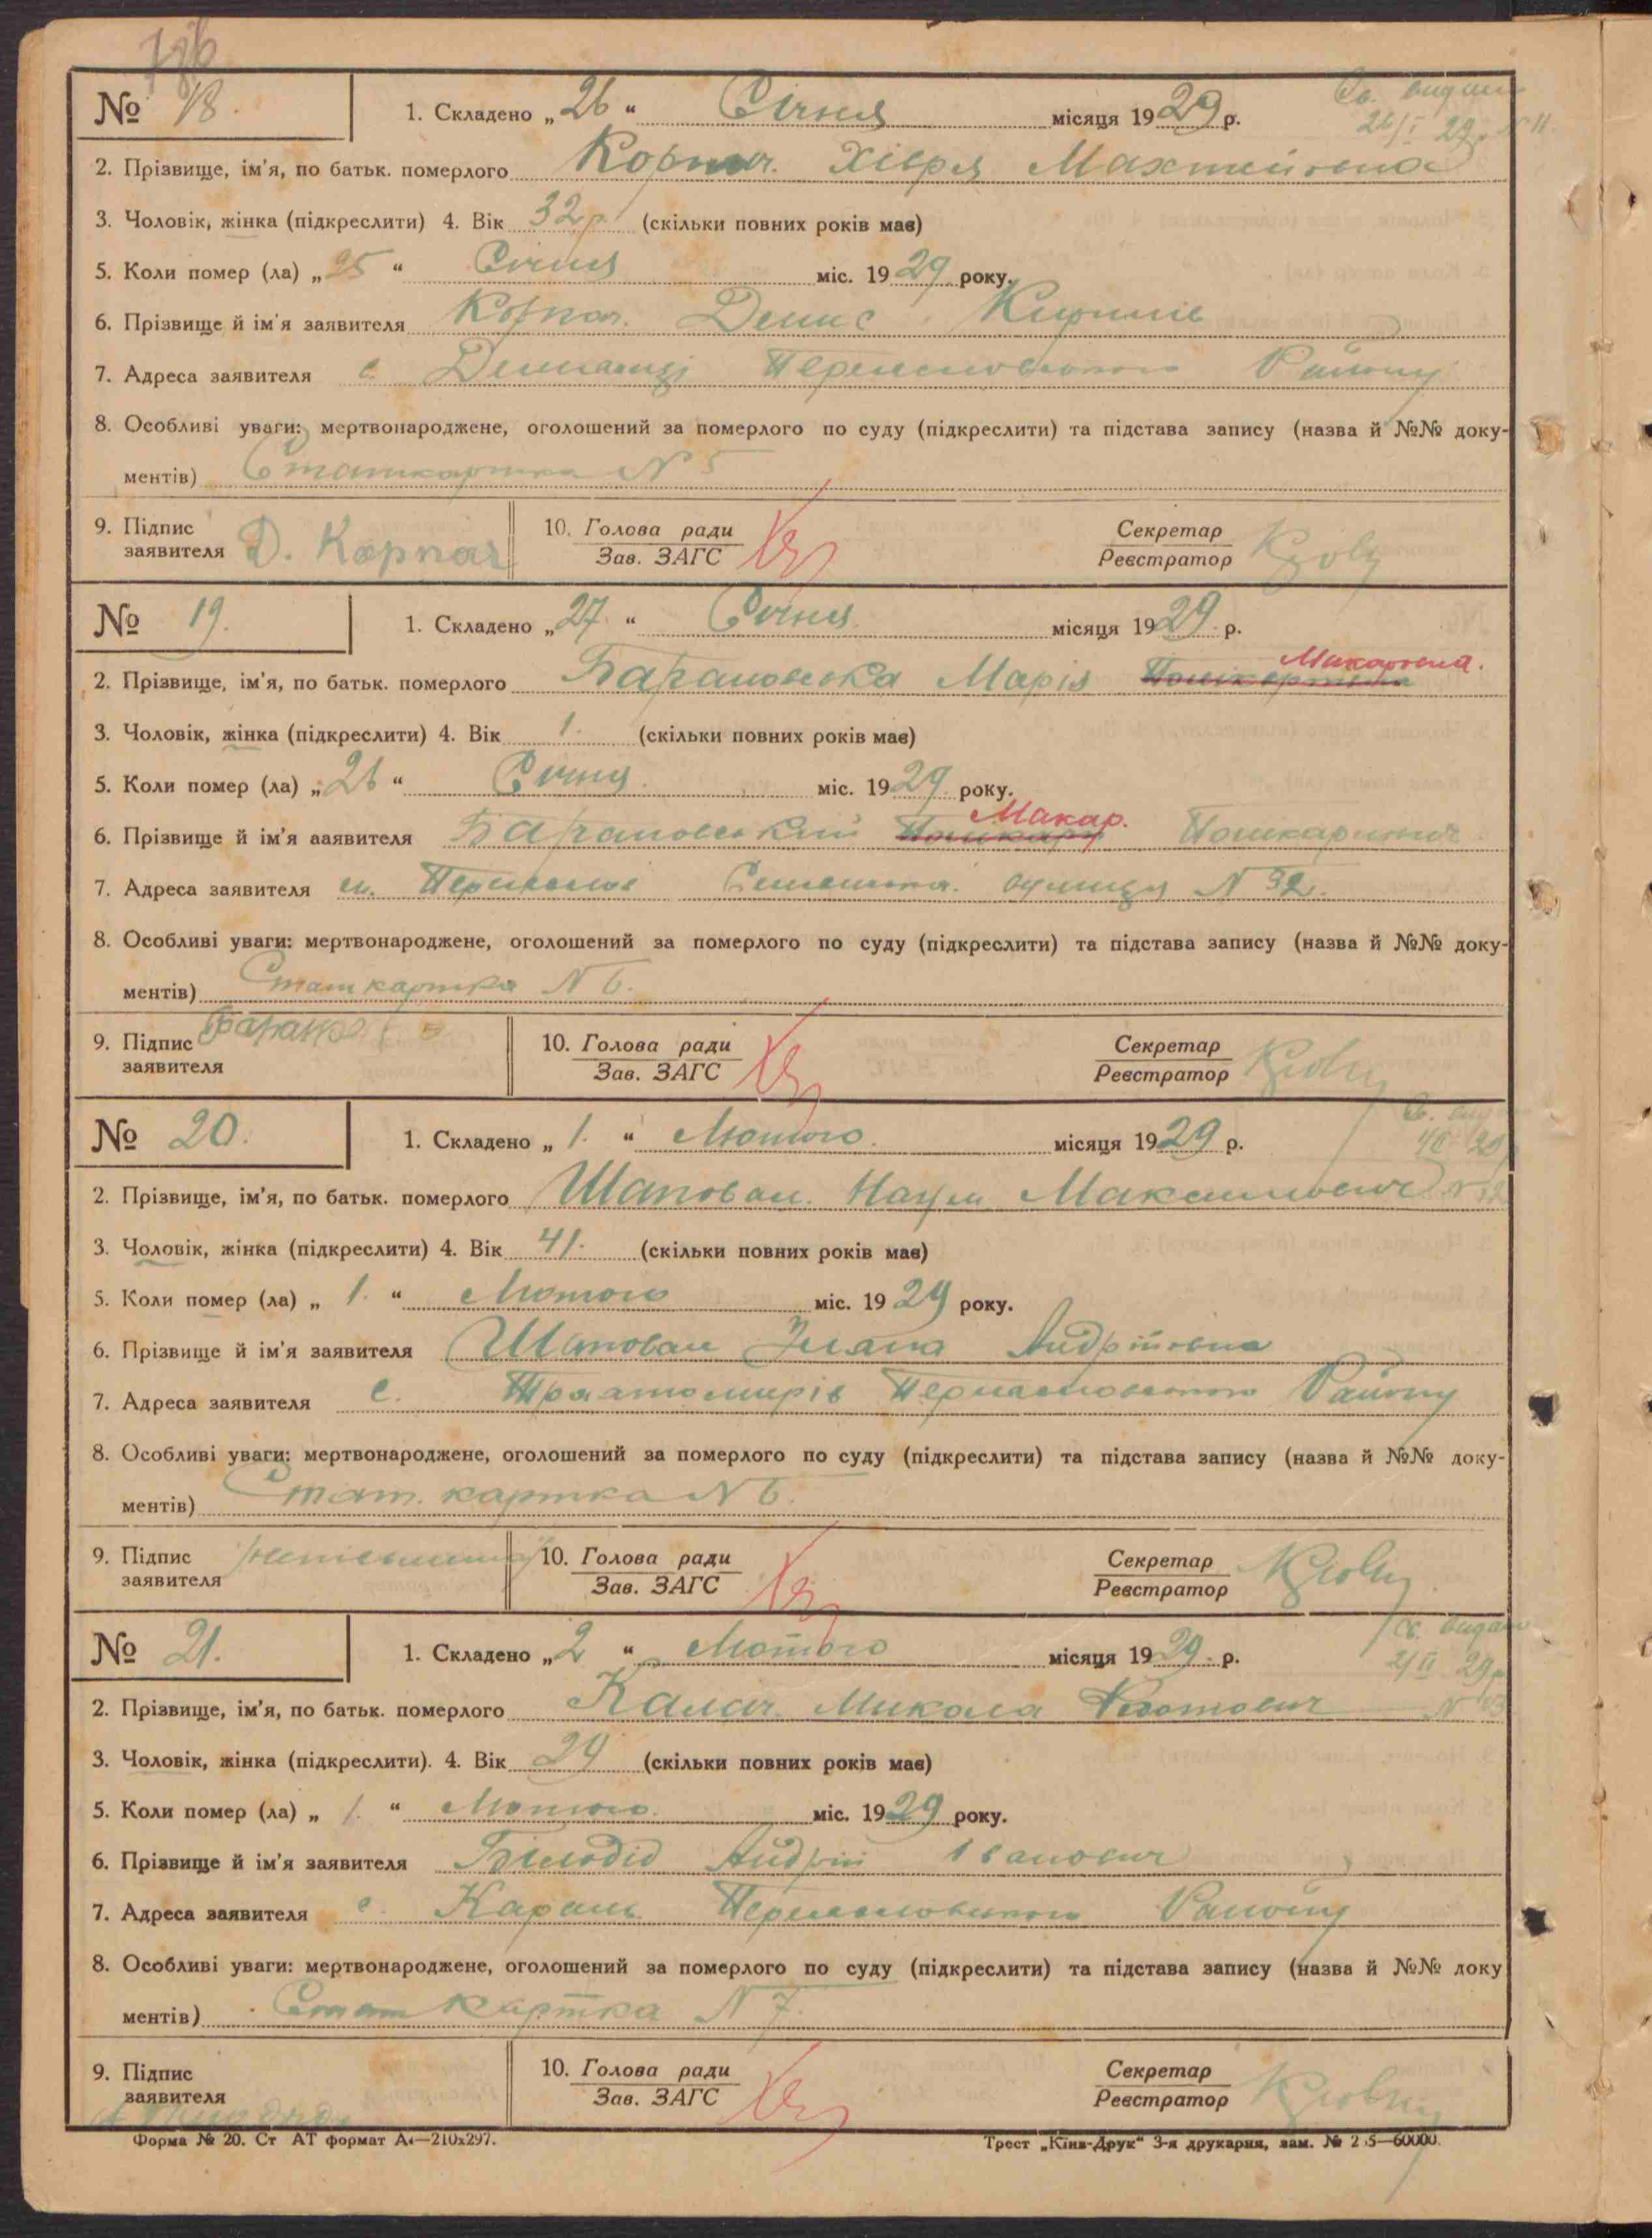 № 18.
1. Складено „26“ Січня місяця 1929 р.
Св. видан
26/I 29 р. N 11.
2. Прізвище, ім'я, по батьк. померлого Корпач. Хівря Махтеївна
3. Чоловік, жінка (підкреслити) 4. Вік 32 р. (скільки повних років має)
5. Коли помер (ла) „25“ Січня міс. 1929 року.
6. Прізвище й ім'я заявителя Корпач. Денис Кирилів
7. Адреса заявителя с. Демпанці Переяславського Району
8. Особливі уваги: мертвонароджене, оголошений за померлого по суду (підкреслити) та підстава запису (назва й №№ доку-
ментів) Статкартка N 5
9. Підпис заявителя Д. Корпач
10. Голова ради
Зав. ЗАГС
Секретар
Реєстратор
№ 19.
1. Складено „27.“ Січня місяця 1929 р.
Макаровна.
2. Прізвище, ім'я, по батьк. померлого Барановська Марія
3. Чоловік, жінка (підкреслити) 4. Вік 1. (скільки повних років має)
5. Коли помер (ла) „26“ Січня. міс. 1929 року.
Макар.
6. Прізвище й ім'я ааявителя Барановський Пошкарович
7. Адреса заявителя м. Переяслав вулиця N 32.
8. Особливі уваги: мертвонароджене, оголошений за померлого по суду (підкреслити) та підстава запису (назва й №№ доку-
ментів) Статкартка N 6.
9. Підпис заявителя
10. Голова ради
Зав. ЗАГС
Секретар
Реєстратор
№ 20.
1. Складено „1.“ Лютого. місяця 1929 р.
2. Прізвище, ім'я, по батьк. померлого Шаповал. Наум Максимович
3. Чоловік, жінка (підкреслити) 4. Вік 41. (скільки повних років має)
5. Коли помер (ла) „1.“ Лютого міс. 1929 року.
6. Прізвище й ім'я заявителя Шаповал Уляна Андріївна
7. Адреса заявителя с. Трахтомирів Переяславського Району
8. Особливі уваги: мертвонароджене, оголошений за померлого по суду (підкреслити) та підстава запису (назва й №№ доку-
ментів) Стат. картка N 6.
9. Підпис заявителя неписьменна
10. Голова ради
Зав. ЗАГС
Секретар
Реєстратор
№ 21.
1. Складено „2“ Лютого місяця 1929. р.
Св. видан
2/II 29 р.
2. Прізвище, ім'я, по батьк. померлого Калач. Микола Федотович
3. Чоловік, жінка (підкреслити). 4. Вік 29 (скільки повних років має)
5. Коли помер (ла) „1.“ Лютого. міс. 1929 року.
6. Прізвище й ім'я заявителя Білодід Андрій Іванович
7. Адреса заявителя с. Карань Переяславського Району
8. Особливі уваги: мертвонароджене, оголошений за померлого по суду (підкреслити) та підстава запису (назва й №№ доку
ментів) Стат картка N 7.
9. Підпис заявителя
10. Голова ради
Зав. ЗАГС
Секретар
Реєстратор
Форма № 20. Ст АТ формат А4—210x297.
Трест „Київ-Друк“ 3-я друкарня, зам. №